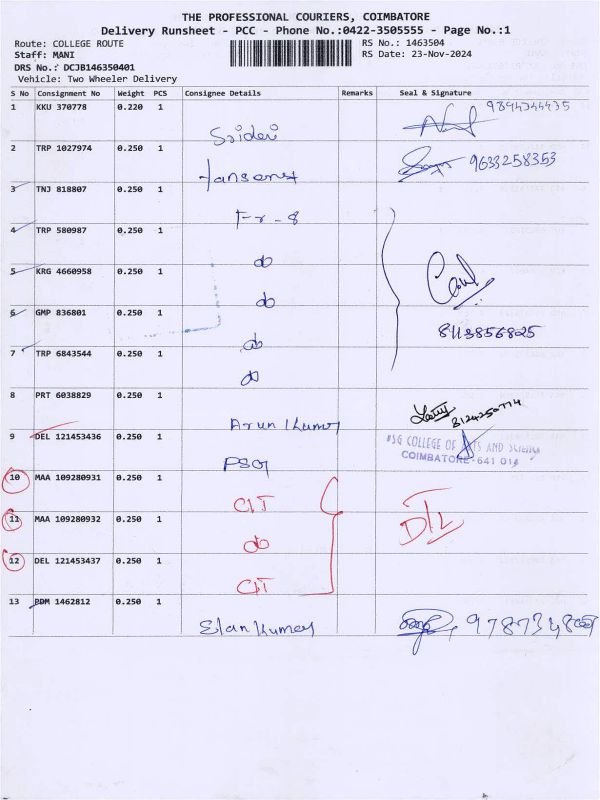 THE PROFESSIONAL COURIERS, COIMBATORE
Delivery Runsheet - PCC - Phone No.:0422-3505555 - Page No.:1
Route: COLLEGE ROUTE RS No.: 1463504
Staff: MANI RS Date: 23-Nov-2024
DRS No.: DCJB146350401
Vehicle: Two Wheeler Delivery
S No Consignment No Weight PCS Consignee Details Remarks Seal & Signature
1 KKU 370778 0.220 1 9894344435
Sridevi
2 TRP 1027974 0.250 1 9633258353
3 TNJ 818807 0.250 1
Fr - 8
4 TRP 580987 0.250 1
do
5 KRG 4660958 0.250 1
do
6 GMP 836801 0.250 1 8113856825
do
7 TRP 6843544 0.250 1
do
8 PRT 6038829 0.250 1 8124250774
Arun Kumar
9 DEL 121453436 0.250 1 PSG COLLEGE OF ARTS AND SCIENCE
COIMBATORE-641 014
PSG
10 MAA 109280931 0.250 1
CIT
11 MAA 109280932 0.250 1
do
12 DEL 121453437 0.250 1
CIT
13 PDM 1462812 0.250 1
Elan Kumar